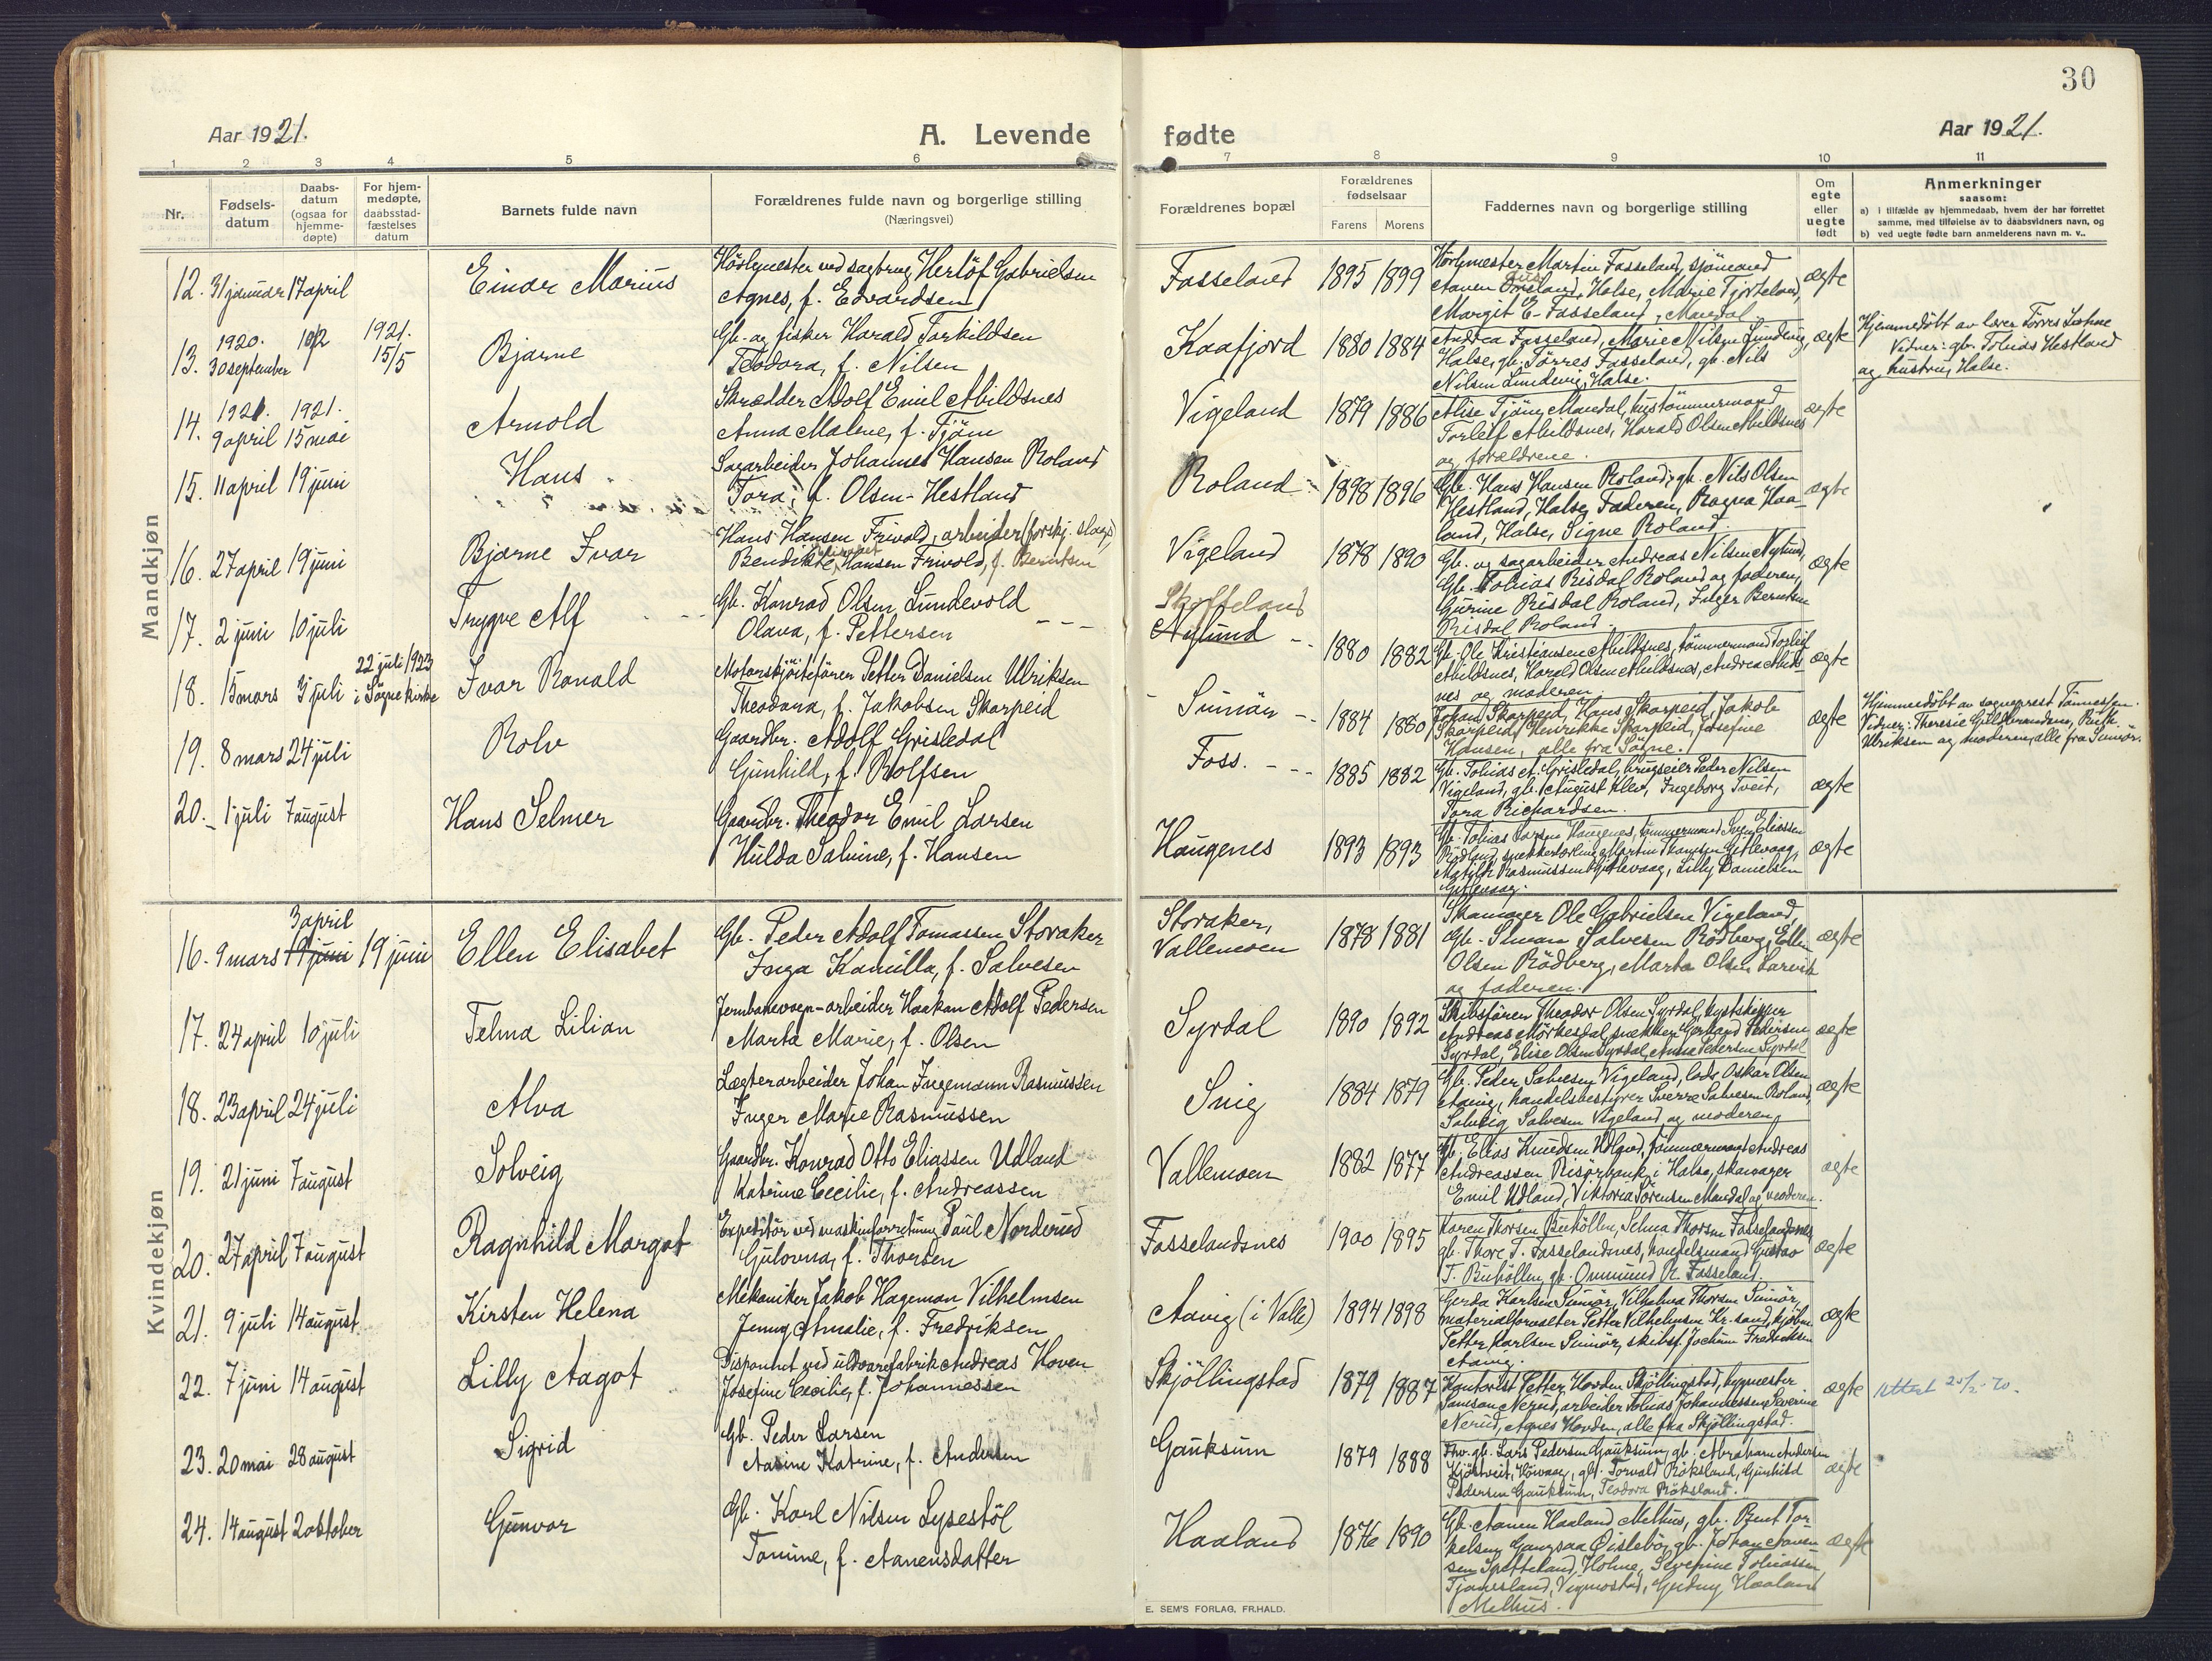 30
Aar 1921.
A. Levende fødte
Aar 1921.
1 2 3 4 5 6 7 8 9 10 11
Nr.
Fødsels-
datum
Daabs-
datum
(ogsaa for
hjemme-
døpte)
For hjem-
medøpte,
daabsstad-
fæstelses
datum
Barnets fulde navn
Forældrenes fulde navn og borgerlige stilling
(Næringsvei)
Forældrenes bopæl
Forældrenes
fødselsaar
Farens Morens
Faddernes navn og borgerlige stilling
Om
egte
eller
uegte
født
Anmerkninger
saasom:
a) i tilfælde av hjemmedaab, hvem der har forrettet
samme, med tilføielse av to daabsvidners navn, og
b) ved uegte fødte barn anmelderens navn m. v..
Mandkjøn
12. 31 januar 17 april
Einar Marius
Hövlemester ved sagbrug Herlöf Gabrielsen
Agnes, f. Edvardsen
Fasseland 1895 1899
Hövlemester Martin Fasseland, sjömand
Halse, Marie
Margit E. Fasseland, Mandal.
ægte
13. 1920. 30 september 10/12 1921. 15/5
Bjarne
Gb. og fisker Harald Torkildsen
Teodora, f. Nilsen
Kaafjord 1880 1884
Andrea Fasseland, Marie Nilsen Lundevig,
Halse, gb. Törres Fasseland, gb. Nils
Nilsen Lundevig, Halse.
ægte
Hjemmedöbt av lærer Törres
Vidner: gb. Tobias Hestland
og hustru, Halse.
14. 1921. 9 april 1921. 15 mai
Arnold
Skrædder Adolf Emil Abildsnes
Anna Malene, f. Tjöm
Vigeland 1879 1886
Alise Tjöm, Mandal, tömmermand
Torleif Abildsnes, Harald Olsen Abildsnes
og forældrene.
ægte
15. 11 april 19 juni
Hans
Sagarbeider Johannes Hansen Roland
Tora, f. Olsen-Hestland
Roland 1898 1896
Gb. Hans Hansen Roland, gb. Nils Olsen
Hestland, Halse, Faderen, Ragna Haa-
land, Halse, Signe Roland.
ægte
16. 27 april 19 juni
Bjarne Ivar
Hans Hansen Frivold, arbeider (forskj. slags)
Bendikte Hansen Frivold, f. Berntsen
Vigeland 1878 1890
Gb. og sagarbeider Andreas Nilsen Nylund,
Gb. Tobias Risdal Roland og faderen,
Gurine Risdal Roland, Inger Berntsen
Risdal Roland.
ægte
17. 2 juni 10 juli
Trygve Alf
Gb. Konrad Olsen Lundevold
Olava, f. Pettersen
Skoffeland
Nylund 1880 1882
Gb. Ole Kristiansen Abildsnes, tömmermand Torleif
Abildsnes, Harald Olsen Abildsnes, Andrea Abilds-
nes og moderen.
ægte
18. 15 mars 3 juli 22 juli 1923 i Sögne kirke
Ivar Ronald
Motorskjöiteförer Petter Danielsen Ulriksen
Theodora, f. Jakobsen Skarpeid
Sunnör 1884 1880
Johan Skarpeid, Hans Skarpeid, Jakob
Skarpeid, Henrikke Skarpeid, Josefine
Hansen, alle fra Sögne.
ægte
Hjemmedöbt av sogneprest Tönnessen.
Vidner: Theresie Gulbrandsen,
Ulriksen og moderen, alle fra Sunnör.
19. 8 mars 24 juli
Rolv
Gaardbr. Adolf Grisledal
Gunhild, f. Rolfsen
Foss. 1885 1882
Gb. Tobias A. Grisledal, brugseier Peder Nilsen
Vigeland, gb. August Klev, Ingeborg Tveit,
Tora Richardsen.
ægte
20. 1 juli 7 august
Hans Selmer
Gaardbr. Theodor Emil Larsen
Hulda Salvine, f. Hansen
Haugenes 1893 1893
Gb. Tobias Larsen Haugenes, tömmermand Sven Eliassen
Rödland, snekkerlærling Martin Thomsen Gitlevaag,
Matilde Rasmussen Gitlevaag, Lilly Danielsen
Gitlevaag.
ægte
Kvindekjøn
16. 9 mars 3 april 19 juni 19 juni
Ellen Elisabet
Gb. Peder Adolf Tomassen Storaker
Inga Kamilla, f. Salvesen
Storaker,
Vallemoen 1878 1881
Skomager Ole Gabrielsen Vigeland,
Gb. Salvesen Rödberg, Ellen
Olsen Rödberg, Marta Olsen
og faderen.
ægte
17. 24 april 10 juli
Telma Lilian
Jernbanevogn-arbeider Haakon Adolf Pedersen
Marta Marie, f. Olsen
Syrdal 1890 1892
Skibsförer Theodor Olsen Syrdal, kystskipper
Andreas Mörkesdal, snekker Gerhard Pedersen
Syrdal, Elise Olsen Syrdal, Anna Pedersen Syrdal
ægte
18. 23 april 24 juli
Alva
Lægterarbeider Johan Ingemann Rasmussen
Inger Marie Rasmussen
Snig 1884 1879
Gb. Peder Salvesen Vigeland, lods Oskar Olsen
Aavig, handelsbestyrer Sverre Salvesen Roland,
Solveig Salvesen Vigeland og moderen
ægte
19. 21 juni 7 august
Solveig
Gaardbr. Konrad Otto Eliassen Udland
Katrine Cecilie, f. Andreassen
Vallemoen 1882 1877
Gb. Elias Knudsen Udland, tömmermand Andreas
Andreassen Risörbank i Halse, skomager
Emil Udland, Viktoria Sörensen Mandal og moderen.
ægte
20. 27 april 7 august
Ragnhild Margot
Expeditör ved maskinforretning Paul Norderud
Gulovna, f. Thorsen
Fasselandsnes 1900 1895
Karen Thorsen Buhöllen, Selma Thorsen Fasselandsnes,
gb. Thore T. Fasselandsnes, handelsmand Gustav
T. Buhöllen, gb. Ommund R. Fasseland.
ægte
21. 9 juli 14 august
Kirsten Helena
Mekaniker Jakob Hageman Vilhelmsen
Jenny Amalie, f. Fredriksen
Aavig (i Valle) 1894 1898
Gerda Karlsen Sunnör, Vilhelma Thorsen Sunnör,
materialforvalter Petter Vilhelmsen Kr.sand, kjöbm.
Petter Karlsen Sunnör, skibsf. Jochum Fredriksen
Aavig.
ægte
22. 7 juni 14 august
Lilly Aagot
Disponent ved uldvarefabrik Andreas Hoven
Josefine Cecilie, f. Johannessen
Skjöllingstad 1879 1887
Kontorist Petter Hovden Skjöllingstad, bygmester
Samson Nerud, arbeider Tobias Johannessen, Severine
Nerud, Agnes Hovden, alle fra Skjöllingstad.
ægte
Uttest
23. 20 mai 28 august
Sigrid
Gb. Peder Larsen
Aasine Katrine, f. Andersen
Gauksum 1879 1888
Fhv. gb. Lars Pedersen Gauksum, gb. Abraham Andersen
gb. Torvald Röksland, Gunhild
Pedersen Gauksum, Teodora Röksland.
ægte
24. 14 august 2 oktober
Gunvor
Gb. Karl Nilsen Lysestöl
Tomine, f. Aanensdatter
Haaland 1876 1890
Gb. Aanen Haaland Melhus, gb. Bent Tor-
kelsen Gangsaa Öislebö, gb. Johan Aanen-
sen Holme, Severine Tobiassen
Tjomsland, Vigmostad, Gudny Haaland
Melhus.
ægte
E. SEM'S FORLAG, FR.HALD.